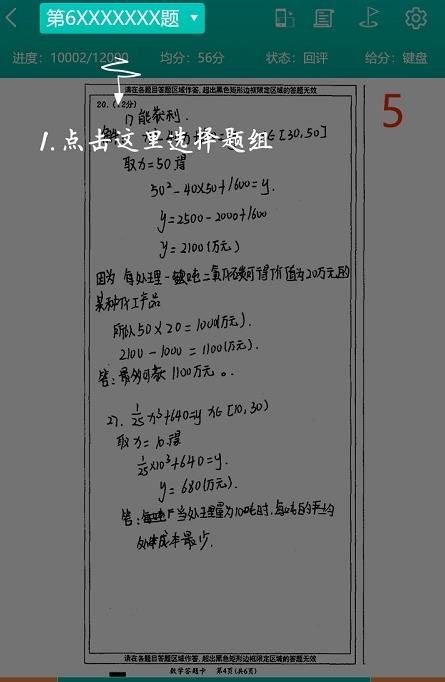 第6XXXXXXX题
进度：10002/12000 均分：56分 状态：回评 给分：键盘
请在各题目答题区域作答，超出黑色矩形边框限定区域的答题无效
20.（12分）
5
1）能获利.
[30,50]
1.点击这里选择题组
取x=50得
50²-40×50+1600=y.
y=2500-2000+1600
y=2100(万元)
因为每处理一吨二氧化碳可得价值为20万元的
某种化工产品
所以50×20=1000(万元).
2100-1000=1100(万元).
答:最多可获1100万元。
2). 1/25 x³+640=y x∈[10,30)
取x=10得
1/25×10³+640=y.
y=680(万元).
答:当处理量为10吨时,每吨的平均
处理成本最少.
请在各题目答题区域作答，超出黑色矩形边框限定区域的答题无效
数学答题卡 第4页(共6页)